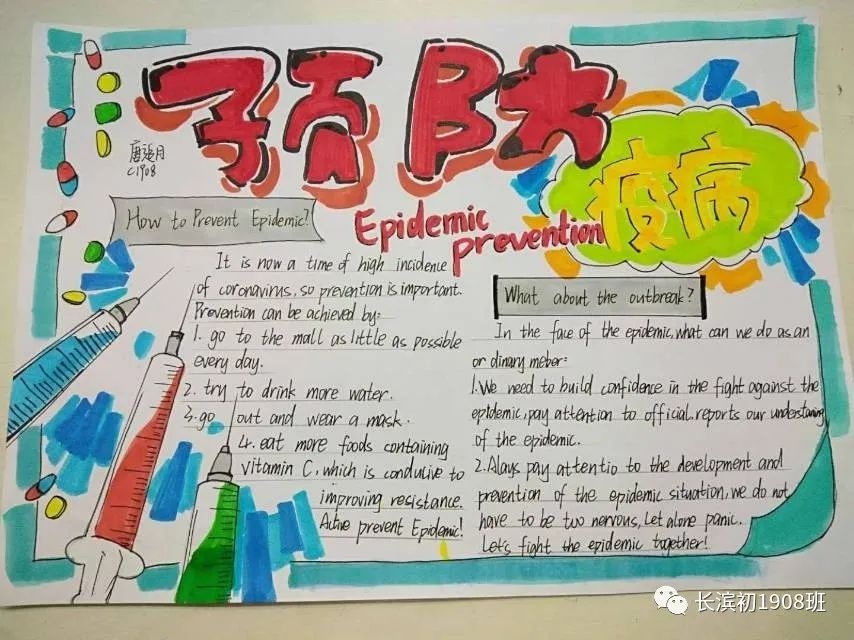 预防
疫病
C1908
Epidemic
prevention
How to Prevent Epidemic?
It is now a time of high incidence
of coronavirus, so prevention is important.
Prevention can be achieved by:
1. go to the mall as little as possible
every day.
2. try to drink more water.
3. go out and wear a mask.
4. eat more foods containing
vitamin C, which is conducive to
improving resistance.
Active prevent Epidemic!
What about the outbreak?
In the face of the epidemic, what can we do as an
or dinary meber:
1. We need to build confidence in the fight against the
epidemic, pay attention to official. reports our understanding
of the epidemic.
2. Alays pay attentio to the development and
prevention of the epidemic situation, we do not
have to be two nervous, Let alone panic.
Let's fight the epidemic together!
长滨初1908班